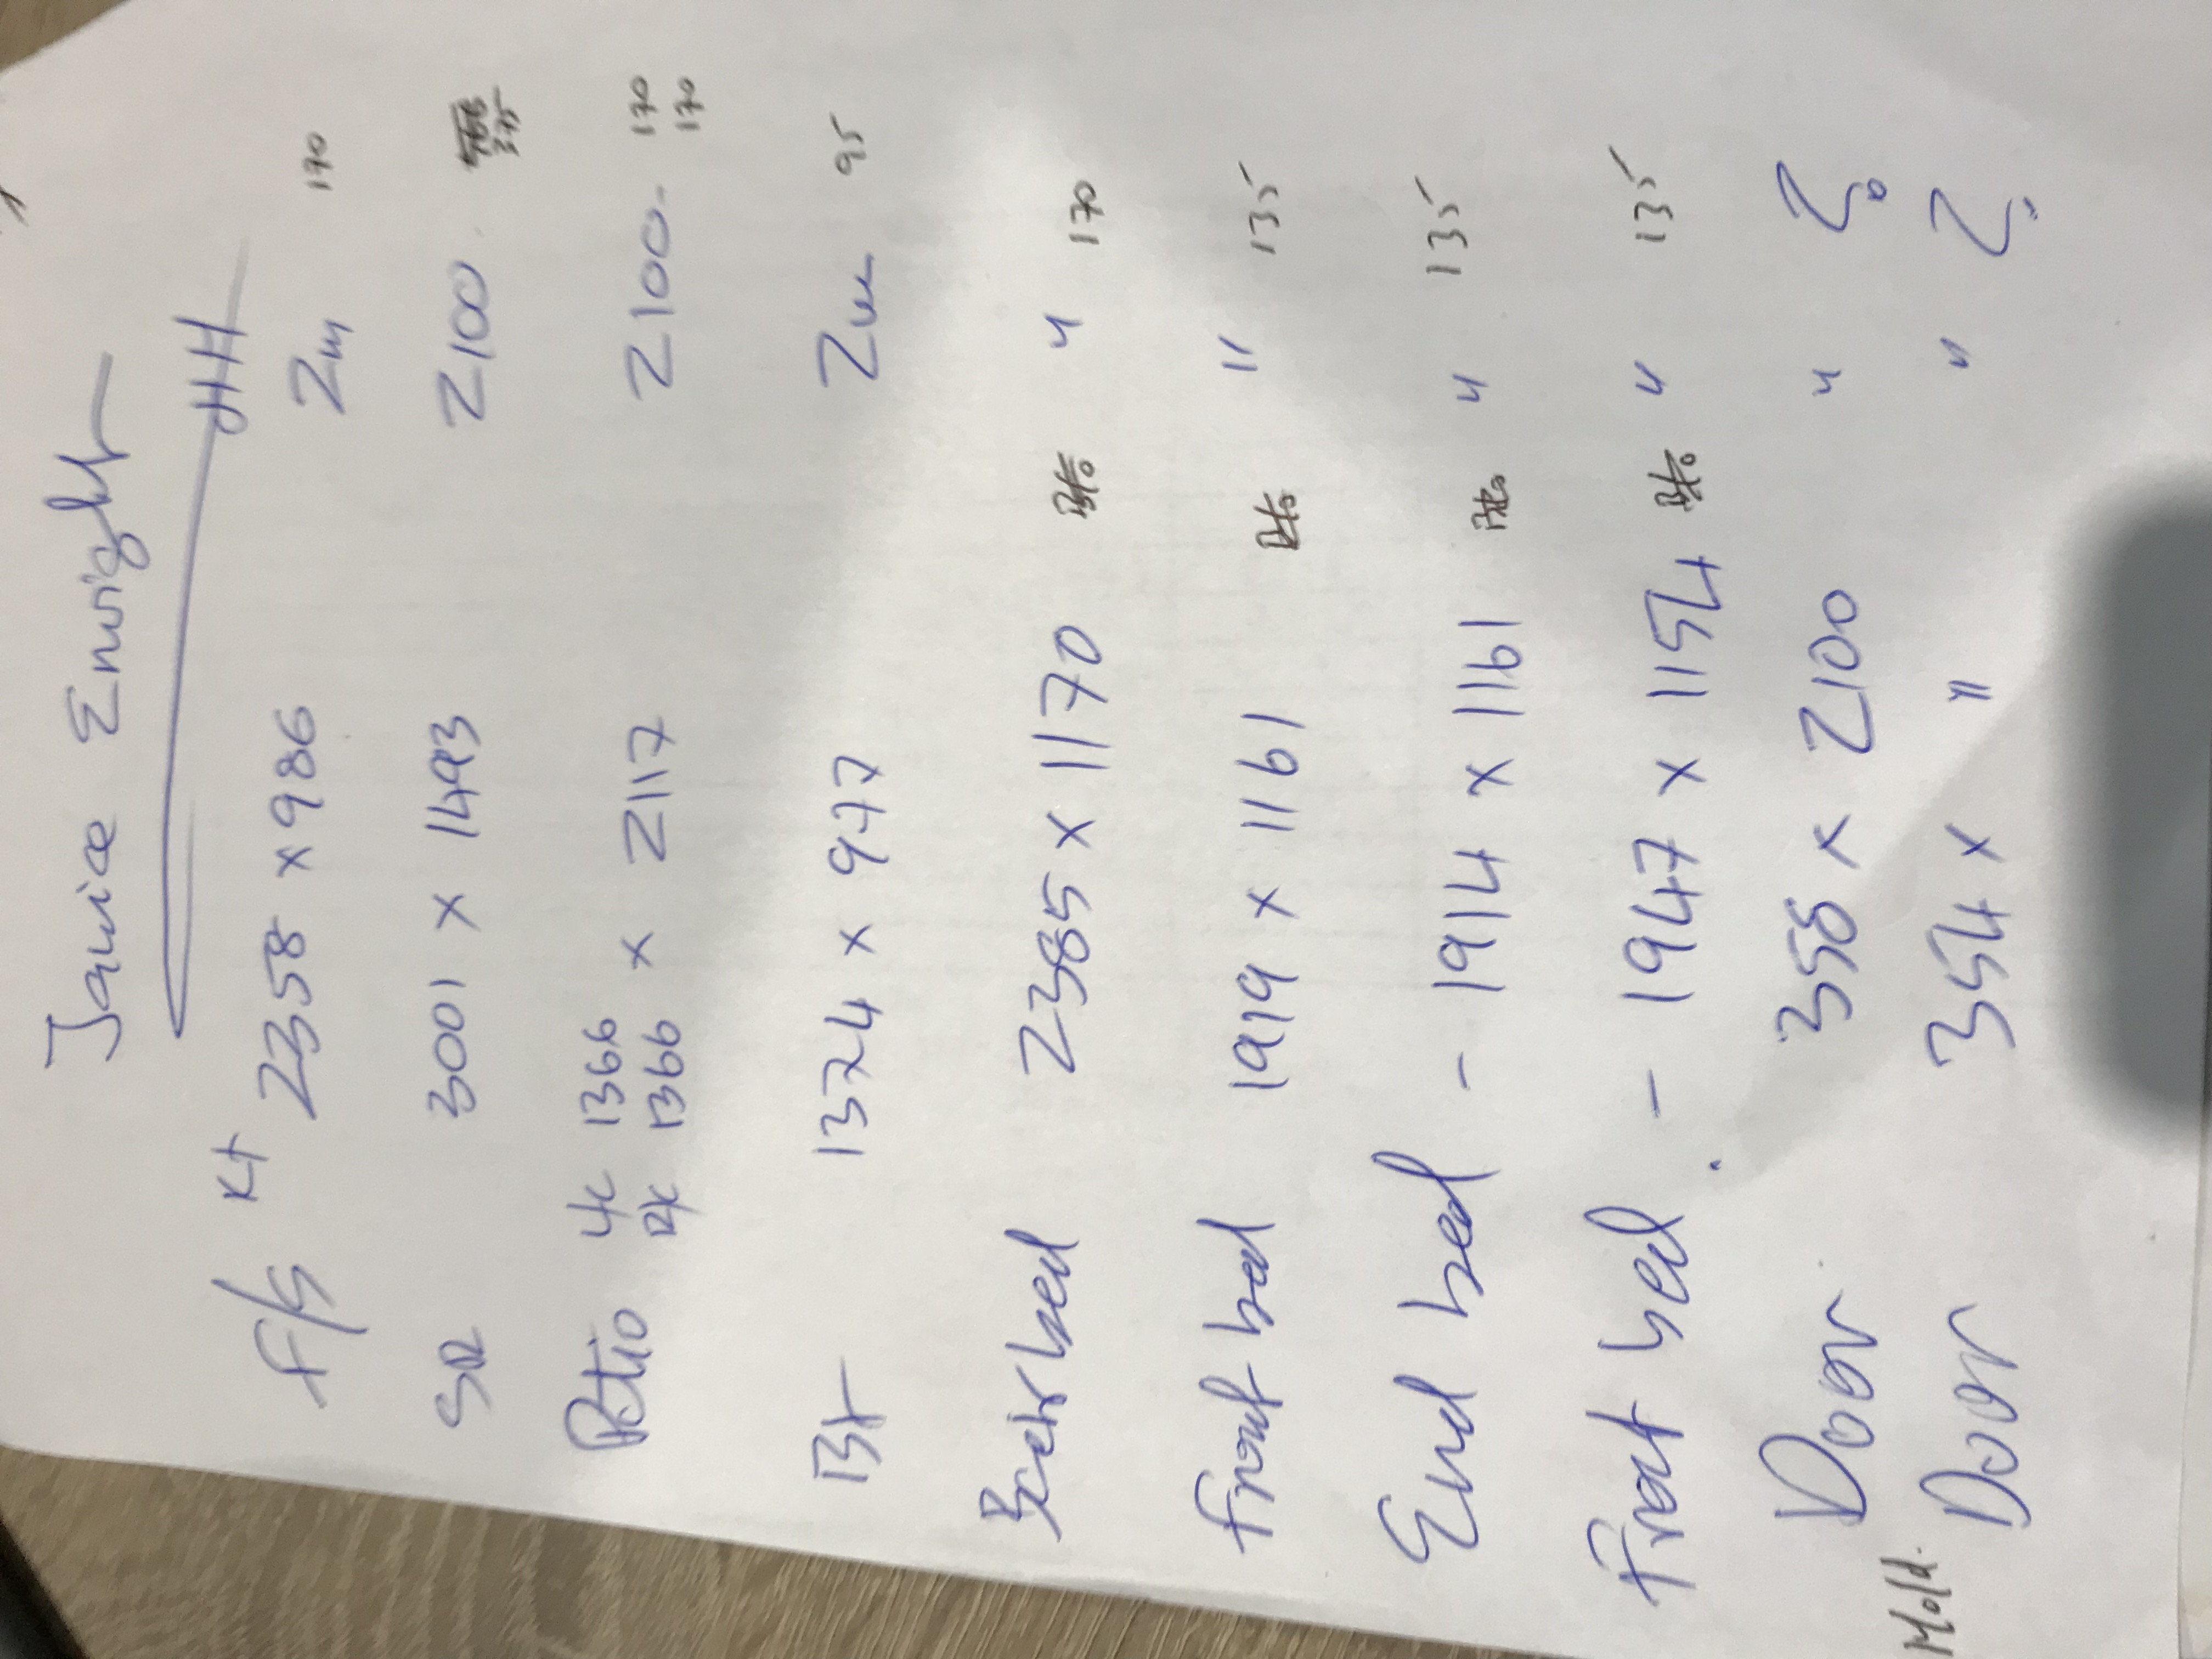 Janice Enright
HH
F/S Kt 2358 x 986 2m 170
SR 3001 x 1493 2100. 375
Patio 1366 170
1366 x 2117 2100- 170
Bt 1324 x 977 2m 95
Back bed 2385 x 1170 " 170
front bed 1919 x 1161 " 135
End bed - 1914 x 1161 " 135
Front bed. - 1947 x 1154 " 135
Door 358 x 2100 " ?
Mold. Door 354 x " " ?